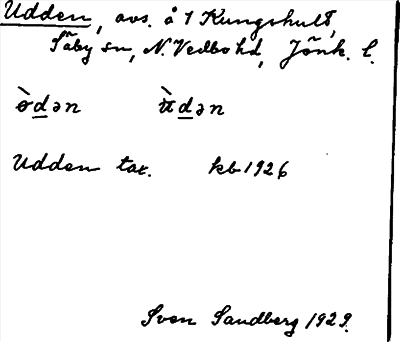 Udden, avs. å 1 Kungshult,
Säby sn, N. Vedbo hd, Jönk. l.
ò̵dən ù̵dən
Udden tax. kb 1926
Sven Sandberg 1929.